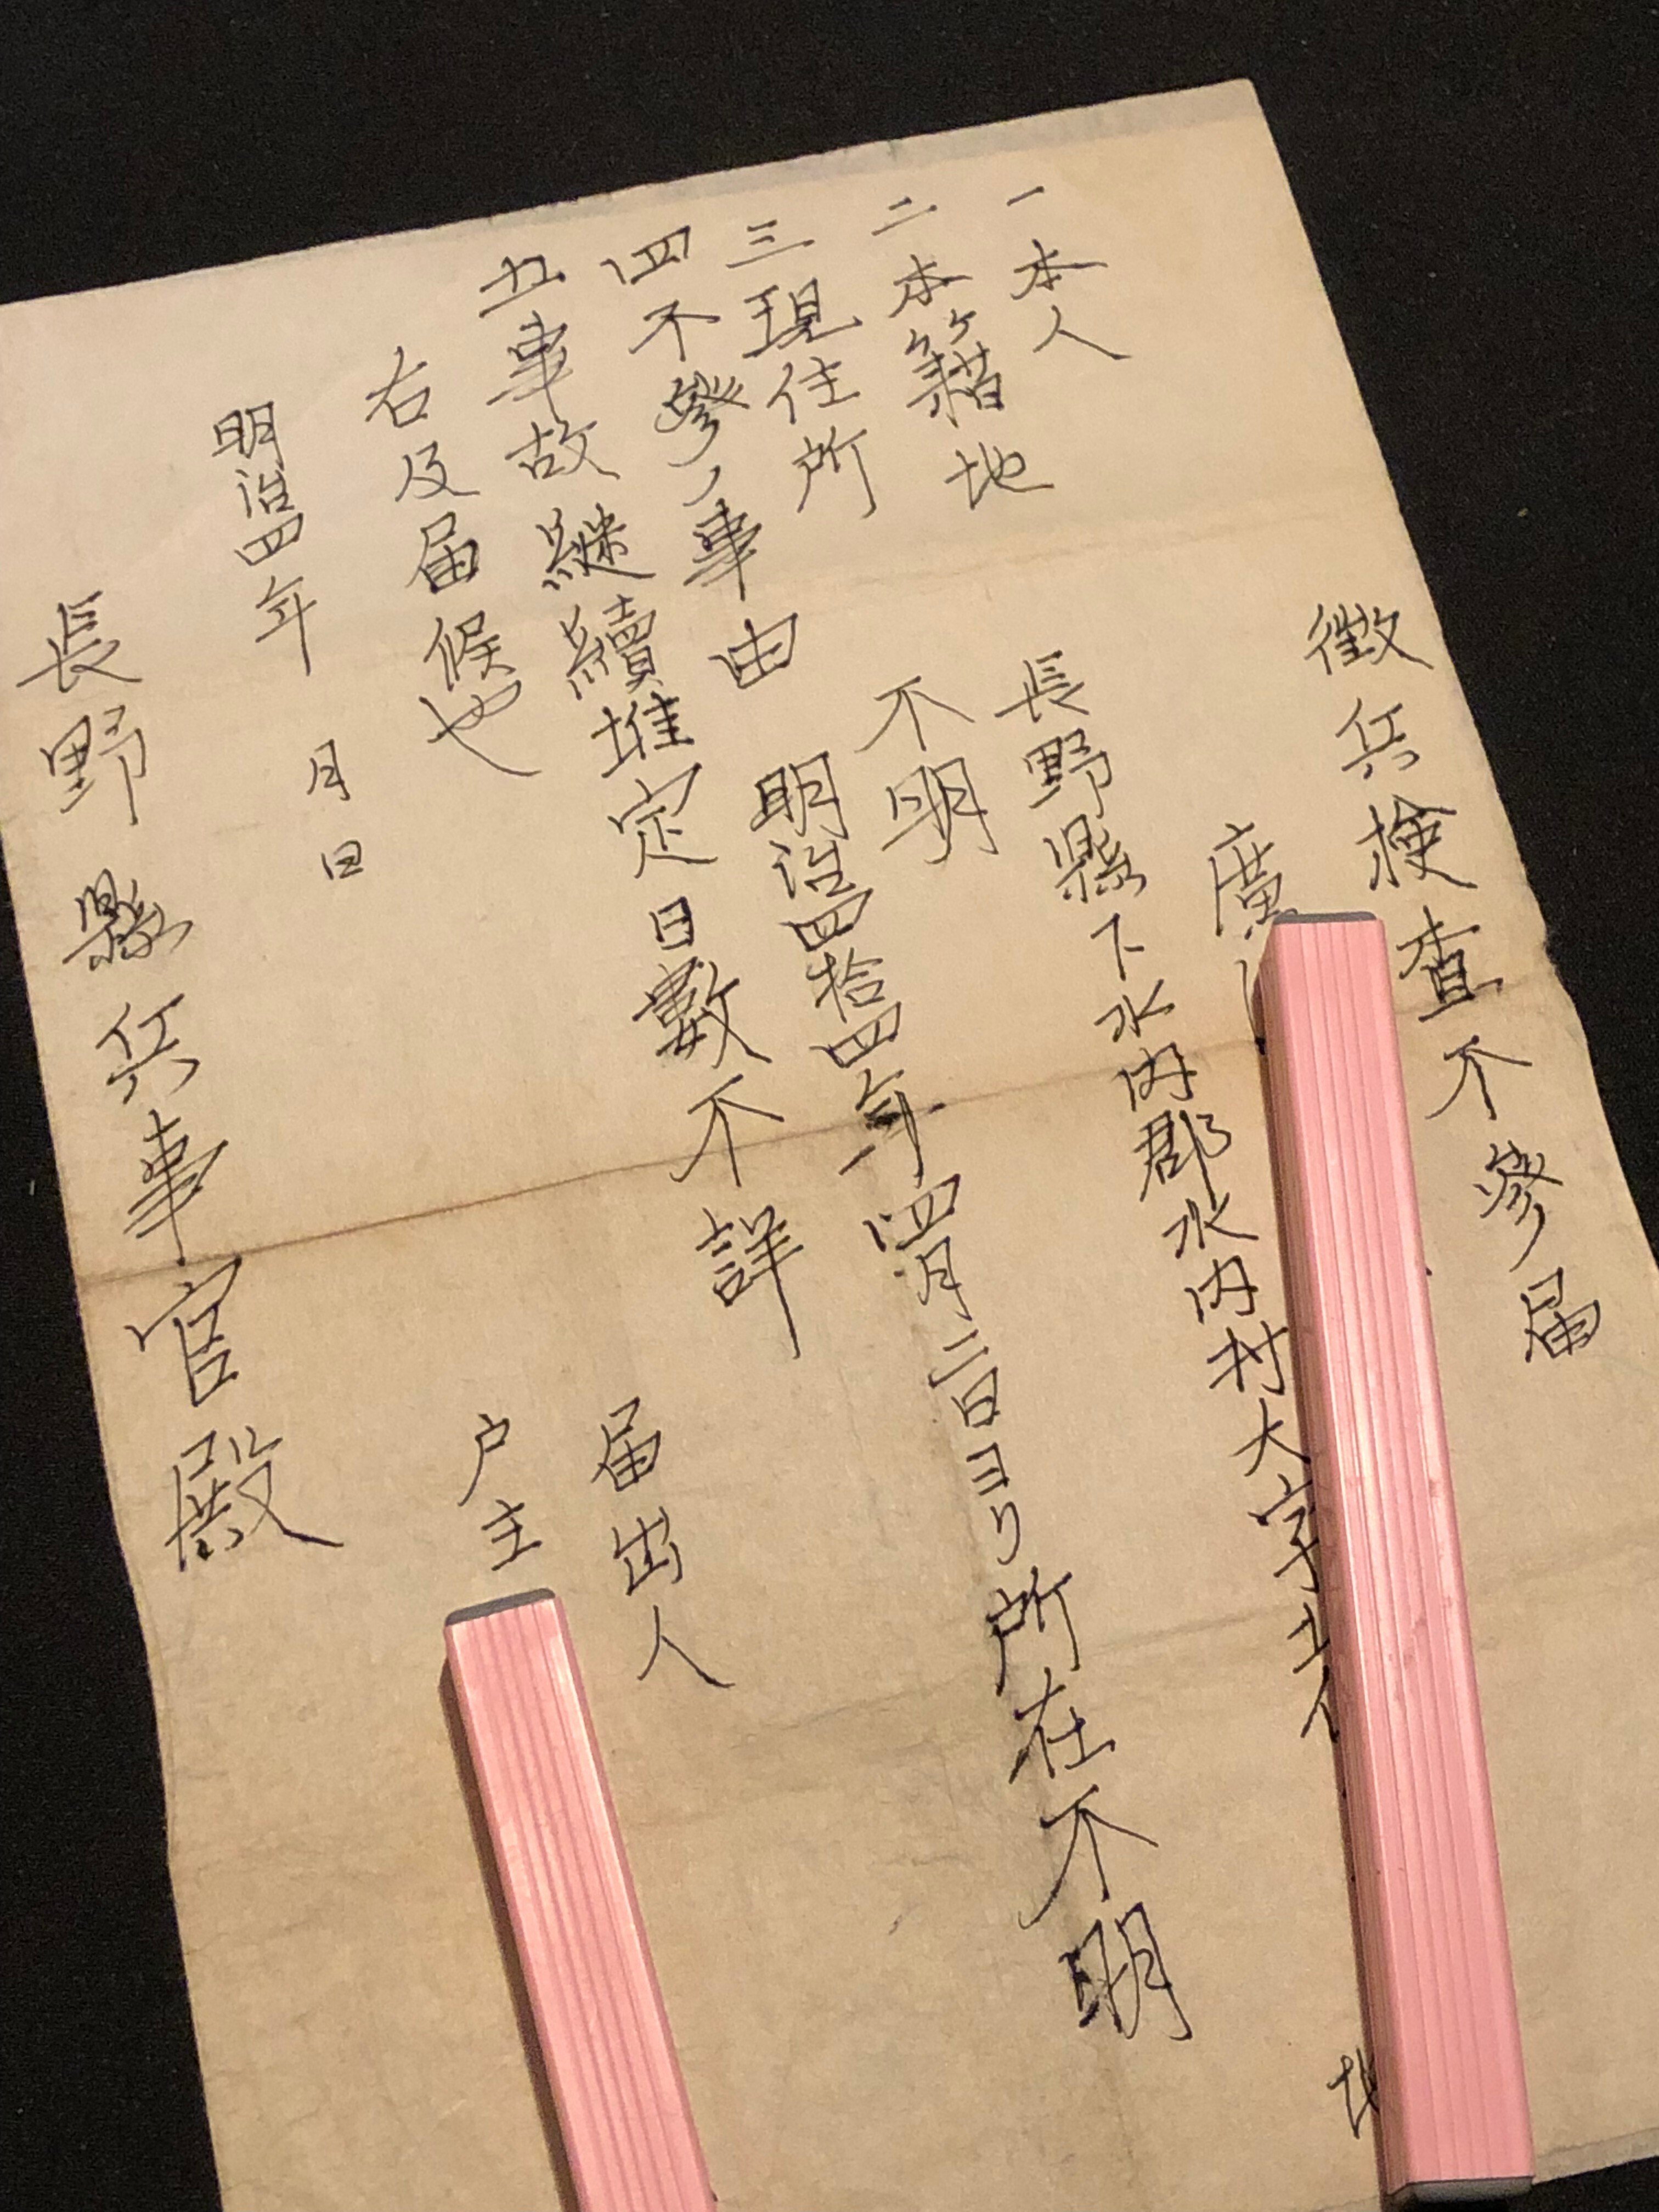 徴兵検査不參届
一本人
廣
二本籍地
長野縣下水内郡水内村大字
地
三現住所
不明
四不參ノ事由
明治四拾四年四月二日ヨリ所在不明
五事故継續堆定日數不詳
右及届候也
届出人
戸主
明治四四年 月 日
長野縣兵事官殿